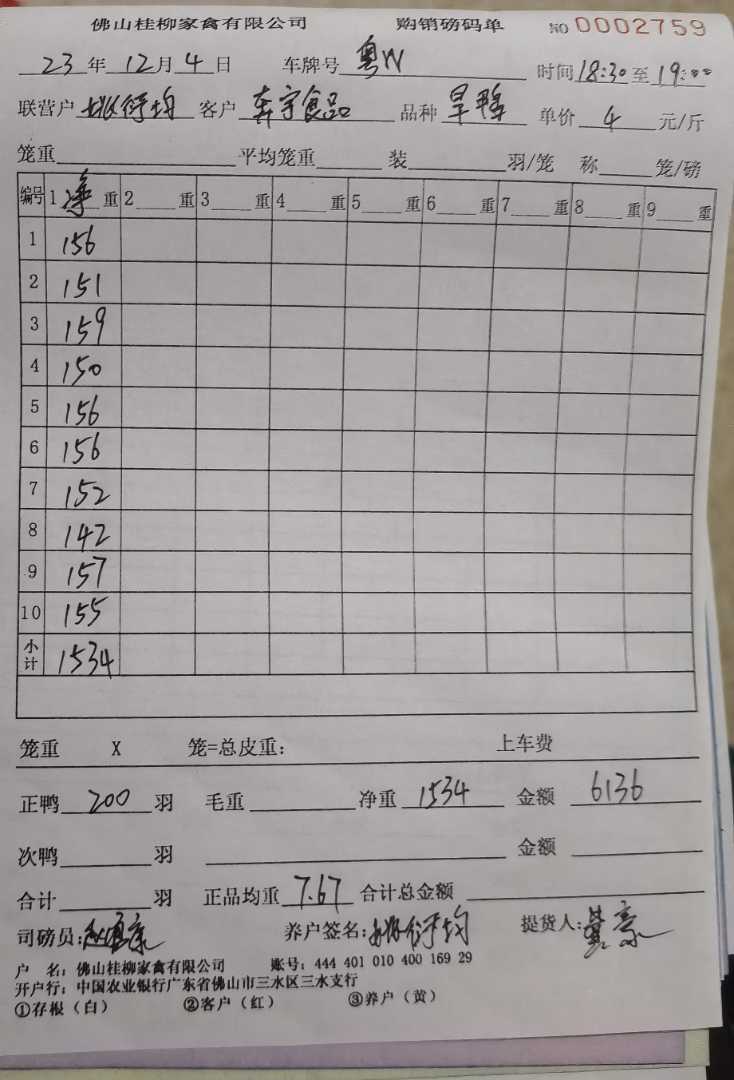 佛山桂柳家禽有限公司 购销磅码单 NO 0002759
23年12月4日 车牌号 粤W 时间18:30至19:00
联营户 姚衍均 客户 奔宇食品 品种 旱鸭 单价 4 元/斤
笼重 平均笼重 装 羽/笼 称 笼/磅
编号 1净重 2 重 3 重 4 重 5 重 6 重 7 重 8 重 9 重
1 156
2 151
3 159
4 150
5 156
6 156
7 152
8 142
9 157
10 155
小计 1534
笼重 X 笼=总皮重: 上车费
正鸭 200 羽 毛重 净重 1534 金额 6136
次鸭 羽 金额
合计 羽 正品均重 7.67 合计总金额
司磅员: 养户签名:姚衍均 提货人:
户 名: 佛山桂柳家禽有限公司 账号: 444 401 010 400 169 29
开户行: 中国农业银行广东省佛山市三水区三水支行
①存根(白) ②客户(红) ③养户(黄)